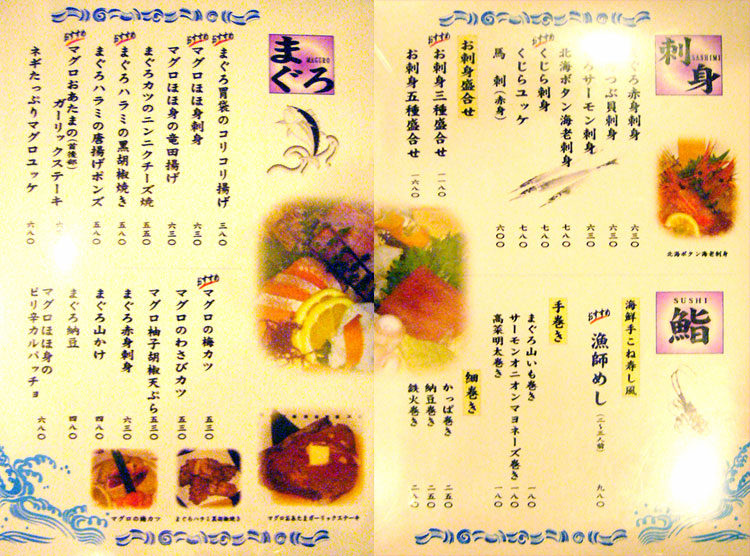 刺身
SASHIMI
ぐろ赤身刺身 六三〇
つぶ貝刺身 六三〇
ろサーモン刺身 六三〇
北海ボタン海老刺身 七八〇
おすすめ
くじら刺身 七八〇
くじらユッケ 七八〇
馬刺(赤身) 六〇〇
お刺身盛合せ
おすすめ
お刺身三種盛合せ 一一八〇
お刺身五種盛合せ 一六八〇
北海ボタン海老刺身
SUSHI
鮨
海鮮手こね寿し風
おすすめ
漁師めし(二〜三人前) 九八〇
手巻き
まぐろ山いも巻き 一八〇
サーモンオニオンマヨネーズ巻き 一八〇
高菜明太巻き 一八〇
細巻き
かっぱ巻き 二五〇
納豆巻き 二五〇
鉄火巻き 二八〇
まぐろ
MAGURO
おすすめ
まぐろ胃袋のコリコリ揚げ 三八〇
おすすめ
マグロほほ身刺身 六三〇
マグロほほ身の竜田揚げ 六三〇
まぐろカツのニンニクチーズ焼 五五〇
おすすめ
まぐろハラミの黒胡椒焼き 五八〇
まぐろハラミの唐揚げポンズ 五八〇
おすすめ
マグロおあたまの(首後部)
ガーリックステーキ
ネギたっぷりマグロユッケ 六八〇
おすすめ
マグロの梅カツ 五三〇
マグロのわさびカツ 五三〇
マグロ柚子胡椒天ぷら 五三〇
まぐろ赤身刺身 六三〇
まぐろ山かけ 四八〇
まぐろ納豆 四八〇
マグロほほ身の
ピリ辛カルパッチョ 六八〇
マグロの梅カツ
まぐろハラミ黒胡椒焼き
マグロおあたまガーリックステーキ